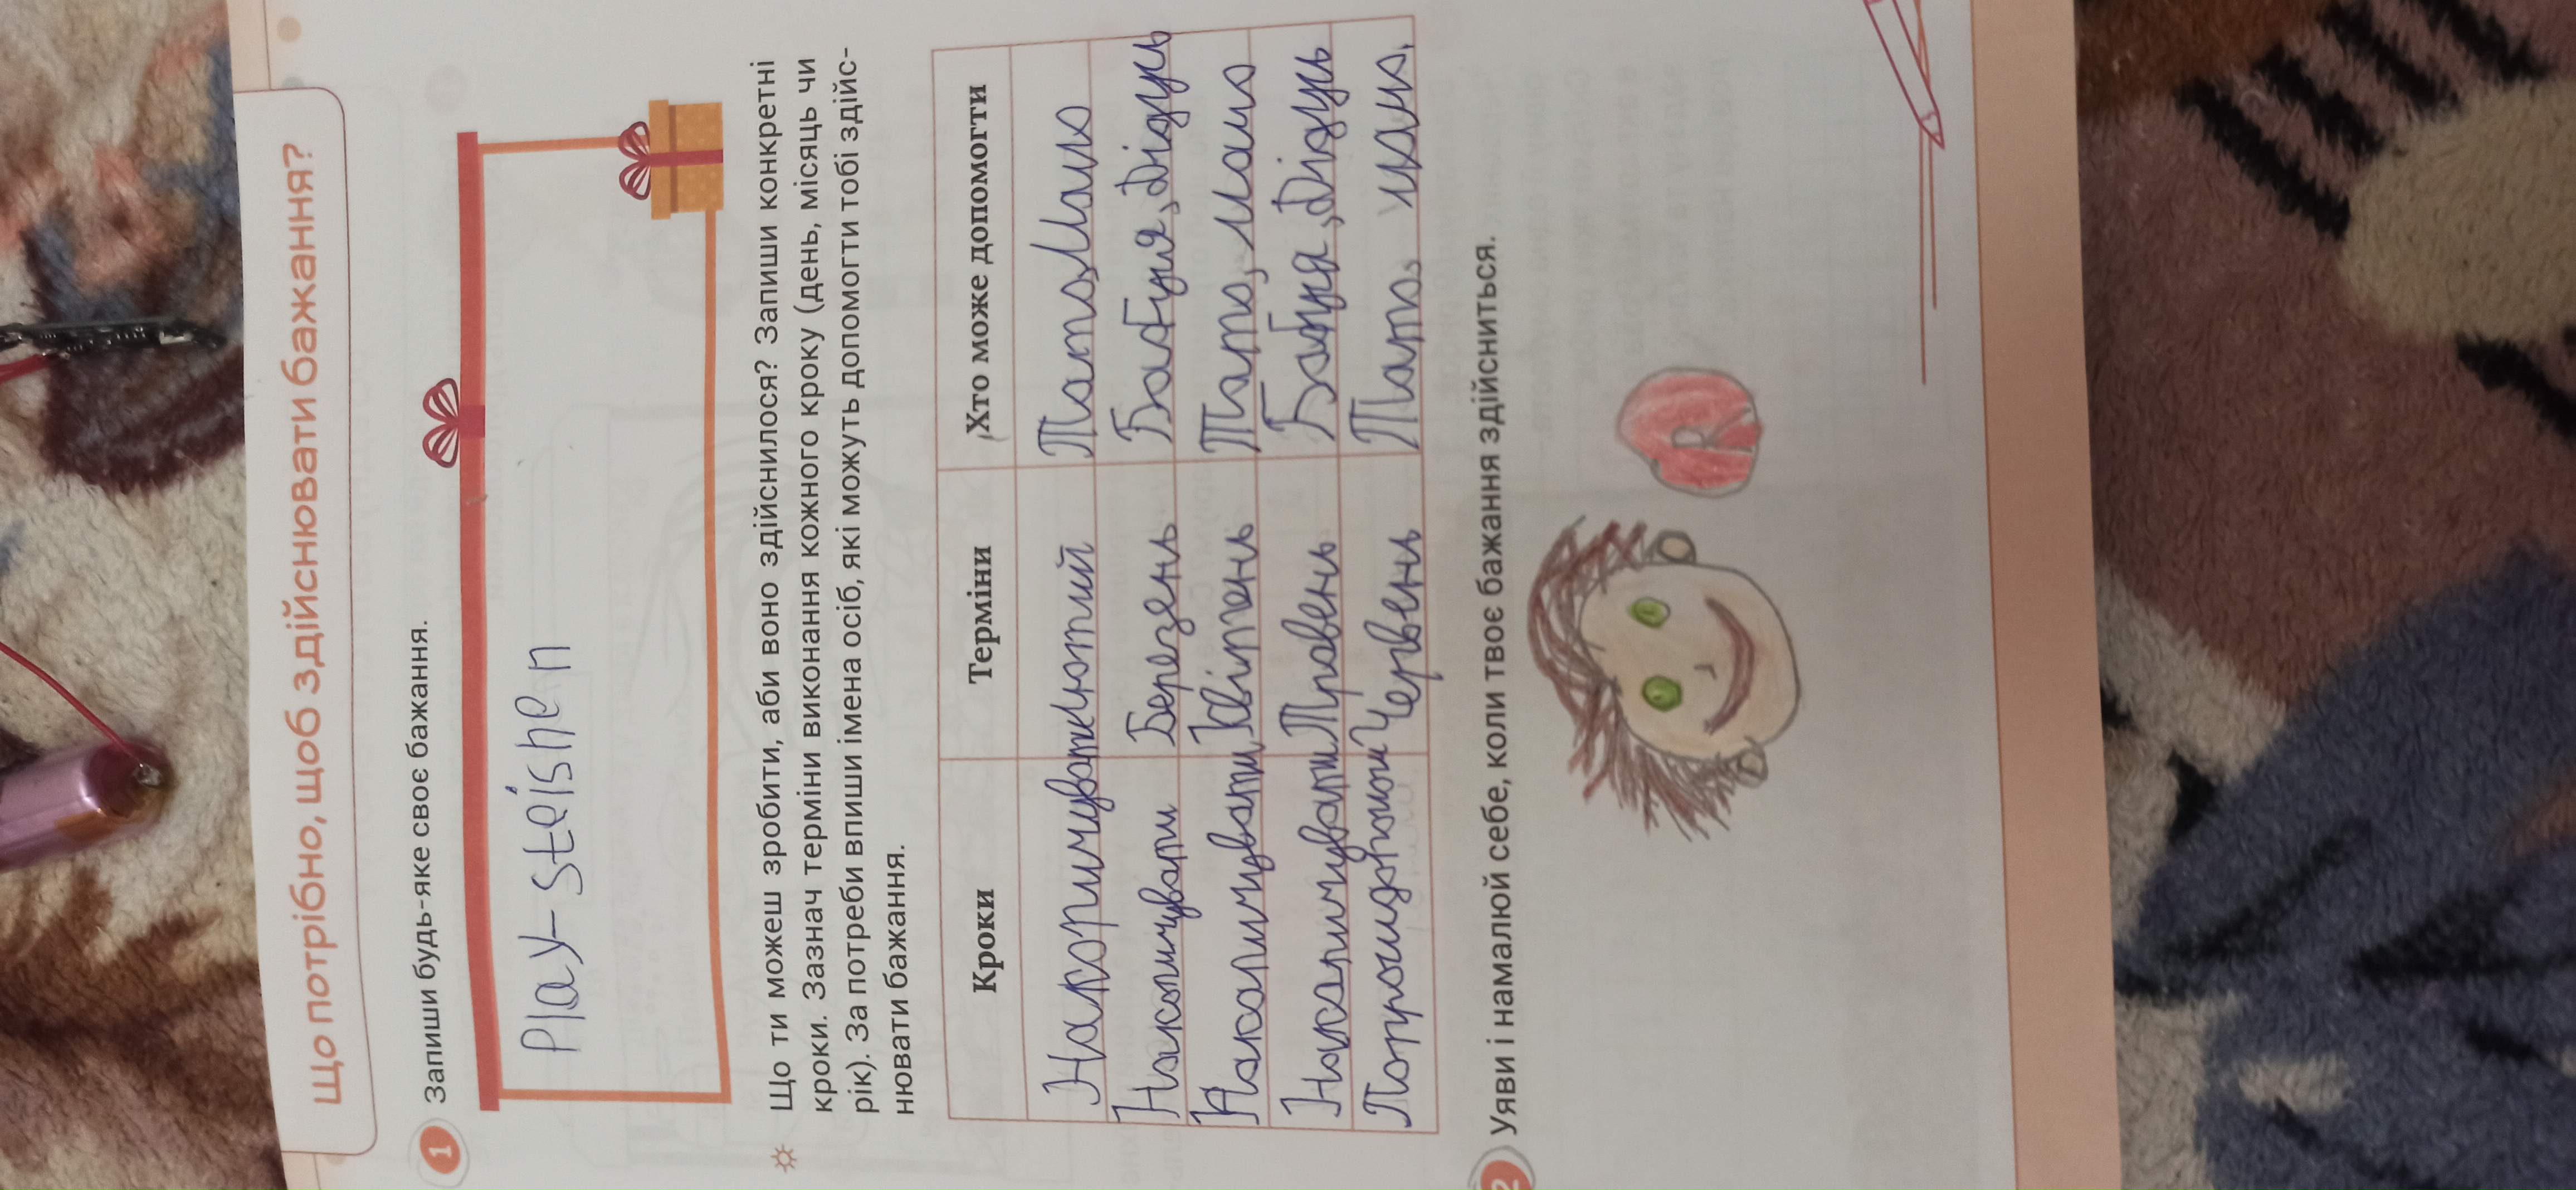 Що потрібно, щоб здійснювати бажання?
1 Запиши будь-яке своє бажання.
Play-steishen
Що ти можеш зробити, аби воно здійснилося? Запиши конкретні
кроки. Зазнач терміни виконання кожного кроку (день, місяць чи
рік). За потреби впиши імена осіб, які можуть допомогти тобі здійс-
нювати бажання.
Кроки Терміни Хто може допомогти
Накопичувати Лютий Тато, Мама
Накопичувати Березень Бабуня, Дідусь
Накопичувати Квітень Тато, мама
Накопичувати Травень Бабуня, Дідусь
Червень Тато, мама,
2 Уяви і намалюй себе, коли твоє бажання здійсниться.
R